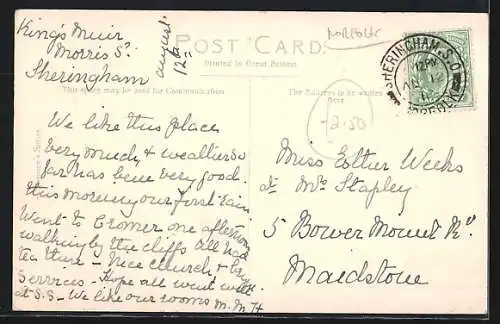 King's Muir
Morris St
Sheringham
august
12th
NORFOLK
POST CARD.
Printed in Great Britain
This space may be used for Communication
The Address to be written
here
SHERINGHAM. S.O.
12 PM
AU 12
NORFOLK
2.50
We like this place
very much & weather so
far has been very good.
this morning our first rain
Went to Cromer one afternoon
walking by the cliffs All had
tea there - Nice church &
Services - Hope all went well
at S.S - We like our rooms M. M H
Miss Esther Weeks
at Mrs Stapley
5 Bower Mount Rd
Maidstone